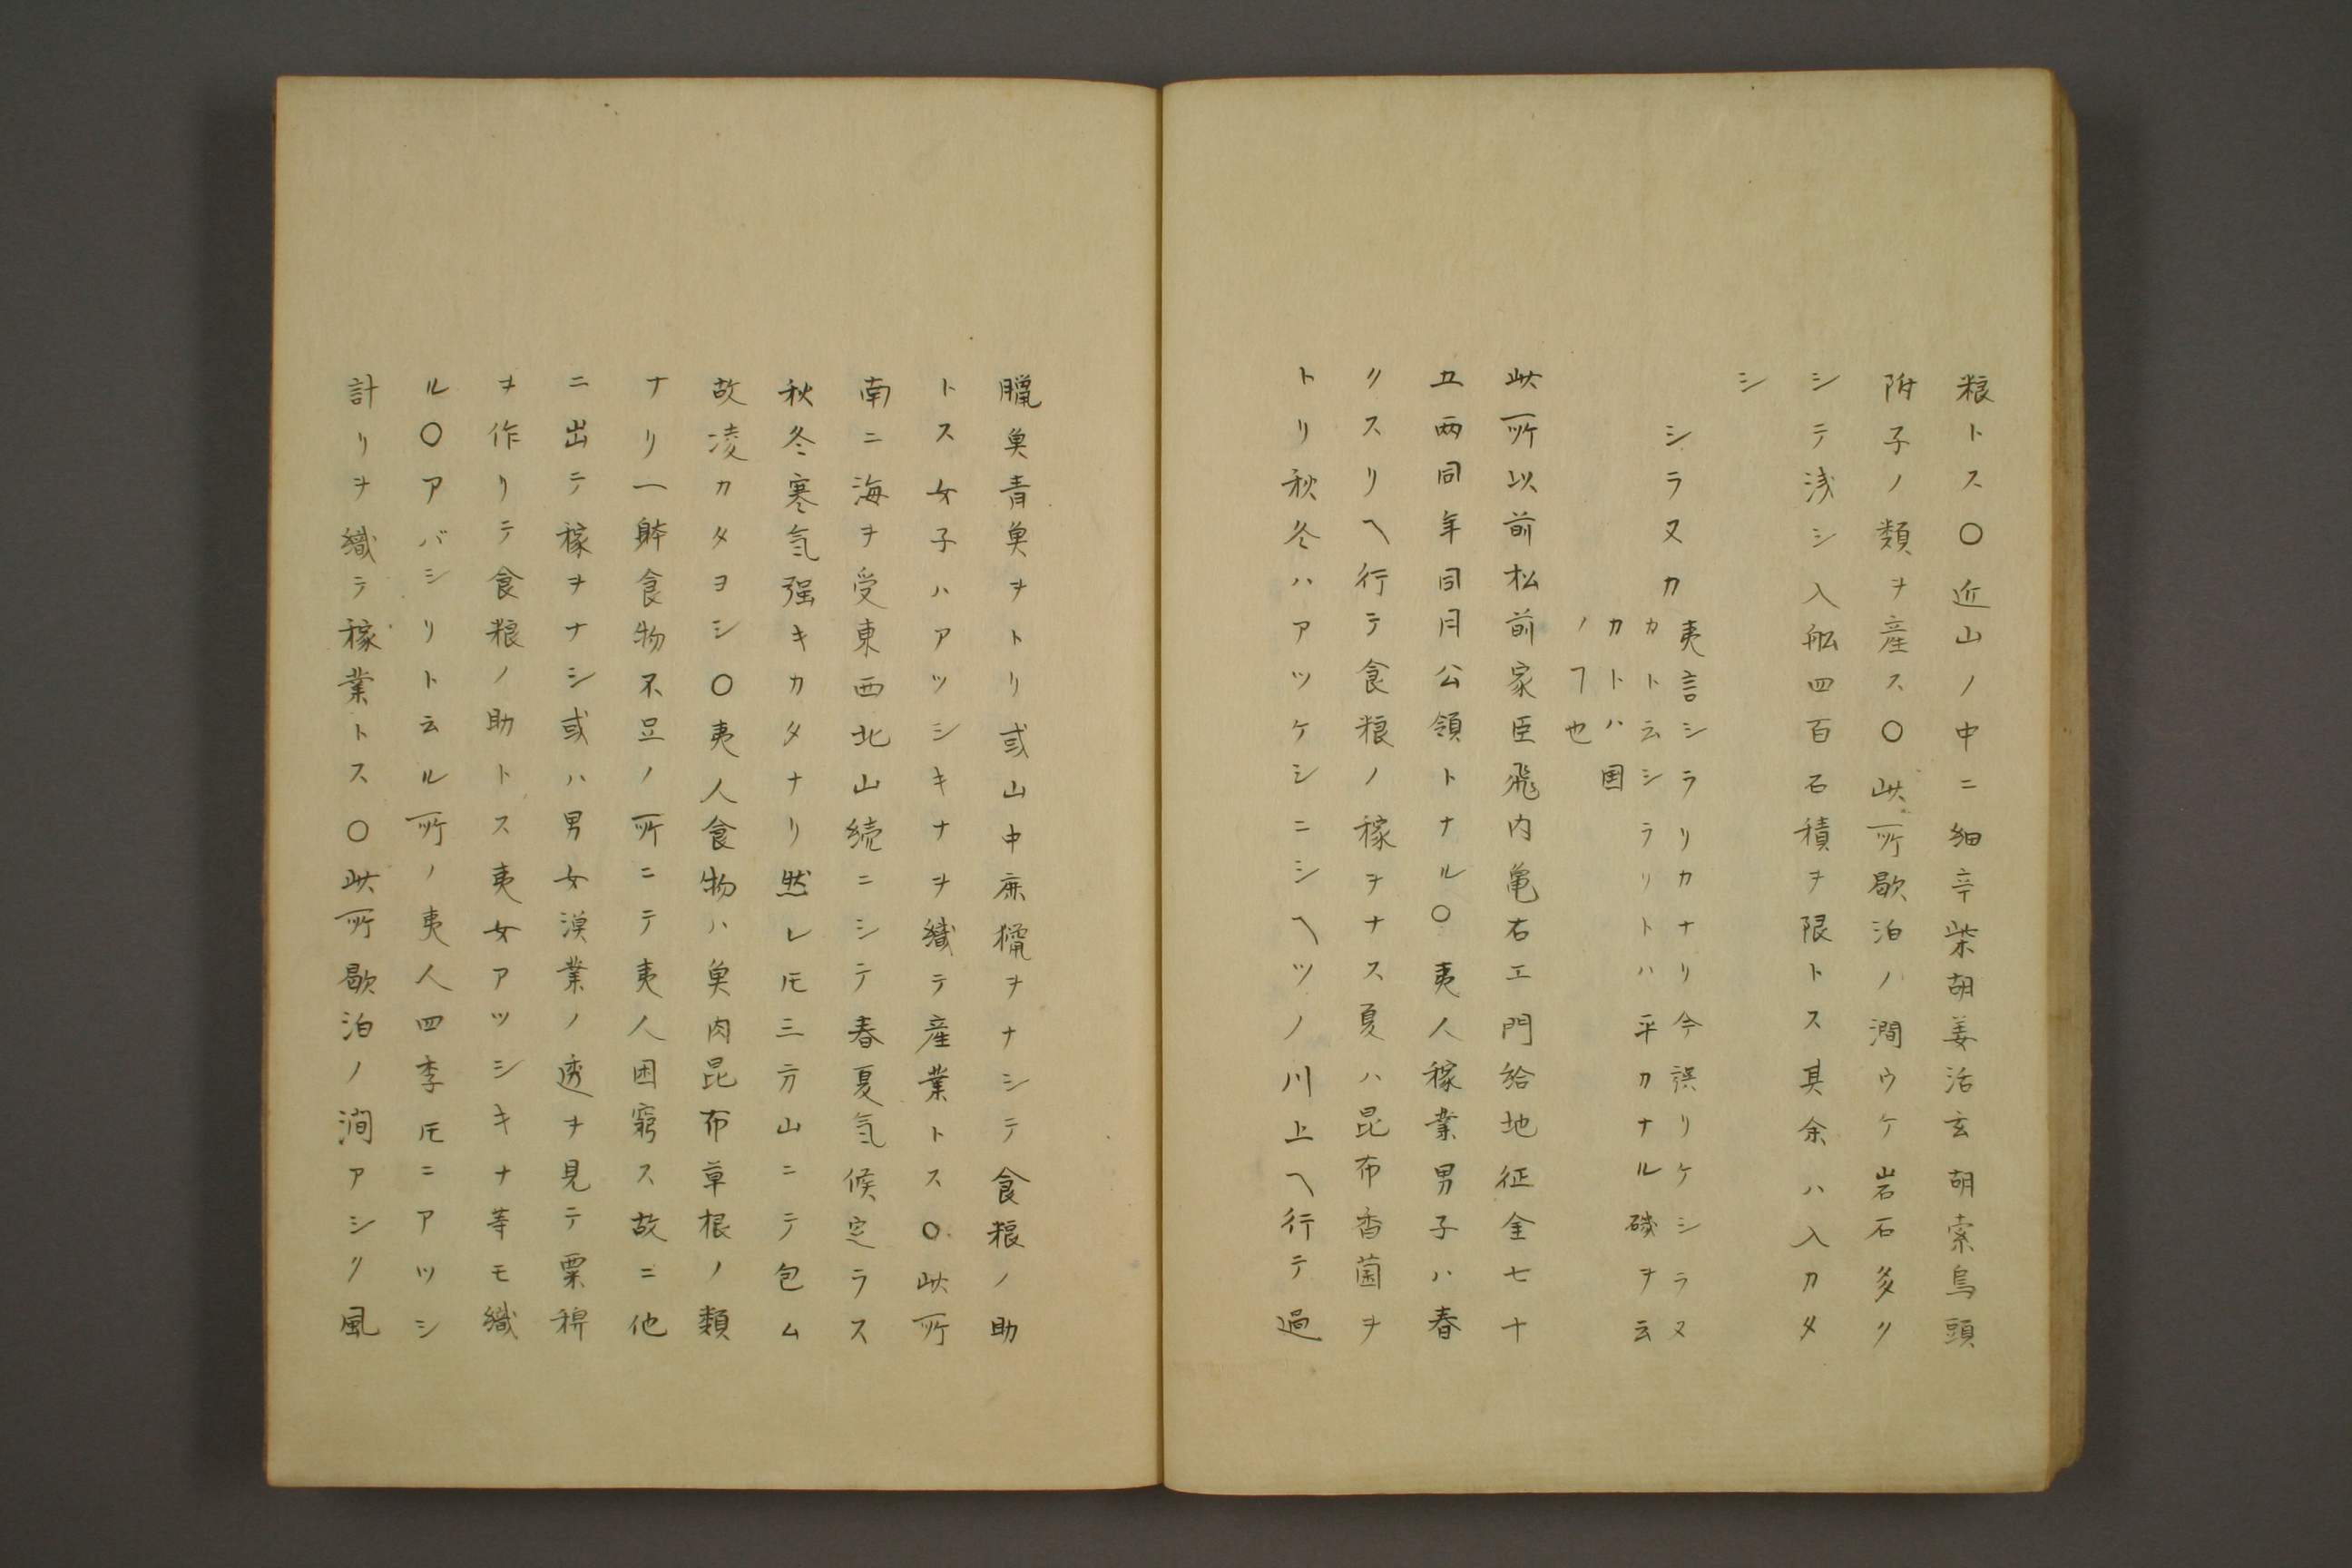 粮トス〇近山ノ中ニ細辛柴胡姜活玄胡索烏頭
附子ノ類ヲ産ス〇此所歇泊ノ澗ウケ岩石多ク
シテ浅シ入舩四百石積ヲ限トス其余ハ入カタ
シ
シラヌカ
夷言シラリカナリ今誤リケシラヌ
カト云シラリトハ平カナル磯ヲ云
カトハ国
ノヿ也
此所以前松前家臣飛内亀右エ門給地征金七十
五両同年同月公領トナル〇夷人稼業男子ハ春
クスリヘ行テ食粮ノ稼ヲナス夏ハ昆布香菌ヲ
トリ秋冬ハアツケシニシヘツノ川上ヘ行テ過
臘魚青魚ヲトリ或山中鹿獵ヲナシテ食粮ノ助
トス女子ハアツシキナヲ織テ産業トス〇此所
南ニ海ヲ受東西北山続ニシテ春夏気候定ラス
秋冬寒気强キカタナリ然レ𪜈三方山ニテ包ム
故凌カタヨシ〇夷人食物ハ魚肉昆布草根ノ類
ナリ一躰食物不足ノ所ニテ夷人困窮ス故ニ他
ニ出テ稼ヲナシ或ハ男女漁業ノ透ヲ見テ粟稗
ヲ作リテ食粮ノ助トス夷女アツシキナ等モ織
ル〇アバシリト云ル所ノ夷人四季𪜈ニアツシ
計リヲ織テ稼業トス〇此所歇泊ノ澗アシク風